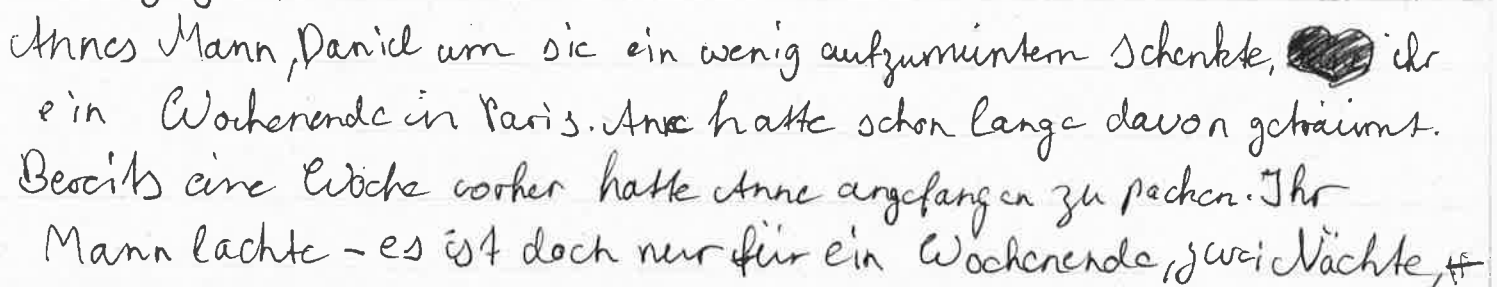 Annes Mann, Daniel um sie ein wenig aufzumuntern schenkte, ihr
ein Wochenende in Paris. Anne hatte schon lange davon geträumt.
Bereits eine Woche vorher hatte Anne angefangen zu packen. Ihr
Mann lachte - es ist doch nur für ein Wochenende, zwei Nächte,